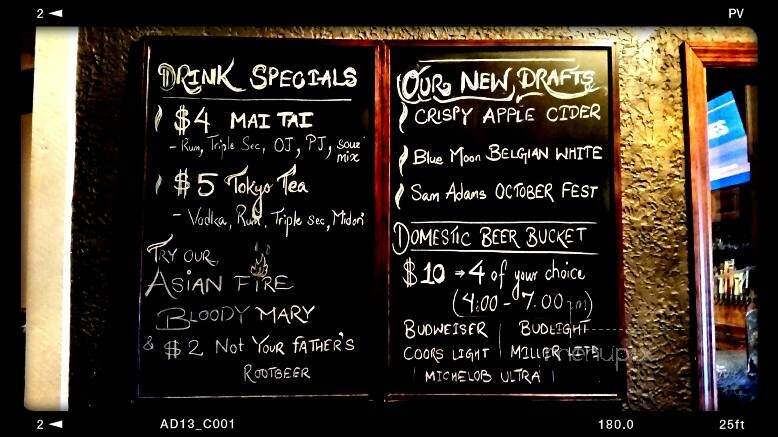 2 ◄
PV
DRINK SPECIALS
$4 MAI TAI
- Rum, Triple Sec, OJ, PJ, sour mix
$5 Tokyo Tea
- Vodka, Rum, Triple sec, Midori
TRY OUR
ASIAN FIRE
BLOODY MARY
& $2 NOT YOUR FATHER'S
ROOTBEER
OUR NEW DRAFTS
CRISPY APPLE CIDER
Blue Moon BELGIAN WHITE
Sam Adams OCTOBER FEST
DOMESTIC BEER BUCKET
$10 → 4 of your choice
(4:00 - 7:00 pm)
BUDWEISER | BUDLIGHT
COORS LIGHT | MILLER LITE
| MICHELOB ULTRA |
menupix
2 ◄
AD13_C001
180.0
25ft